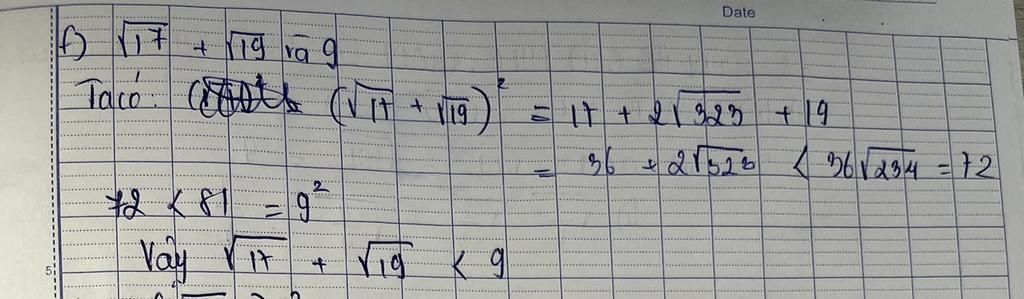 Date
f) √17 + √19 và 9
Ta có: (√17 + √19)² = 17 + 2√323 + 19
= 36 + 2√323 < 36√234 = 72
72 < 81 = 9²
Vậy √17 + √19 < 9
5